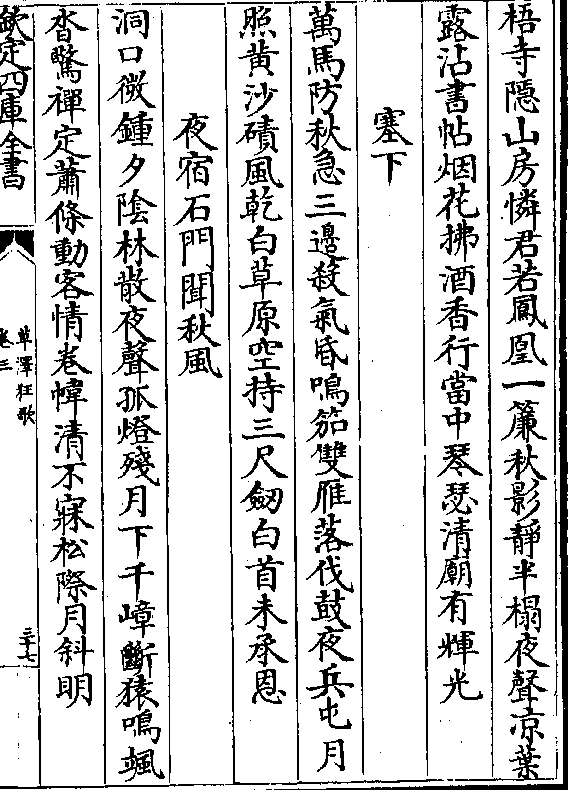 梧寺隠山房憐君若鳳凰一簾秋影靜半榻夜聲凉葉
露沾書帖烟花拂酒香行當中琴瑟清廟有輝光
塞下
萬馬防秋急三邊殺氣昏鳴笳雙雁落伐鼓夜兵屯月
照黄沙磧風乾白草原空持三尺劒白首未承恩
夜宿石門聞秋風
洞口微鍾夕陰林散夜聲孤燈殘月下千嶂斷猿鳴颯
沓驚禪定蕭條動客情卷幃清不寐松際月斜明
欽定四庫全書
草澤狂歌
卷三
三十七